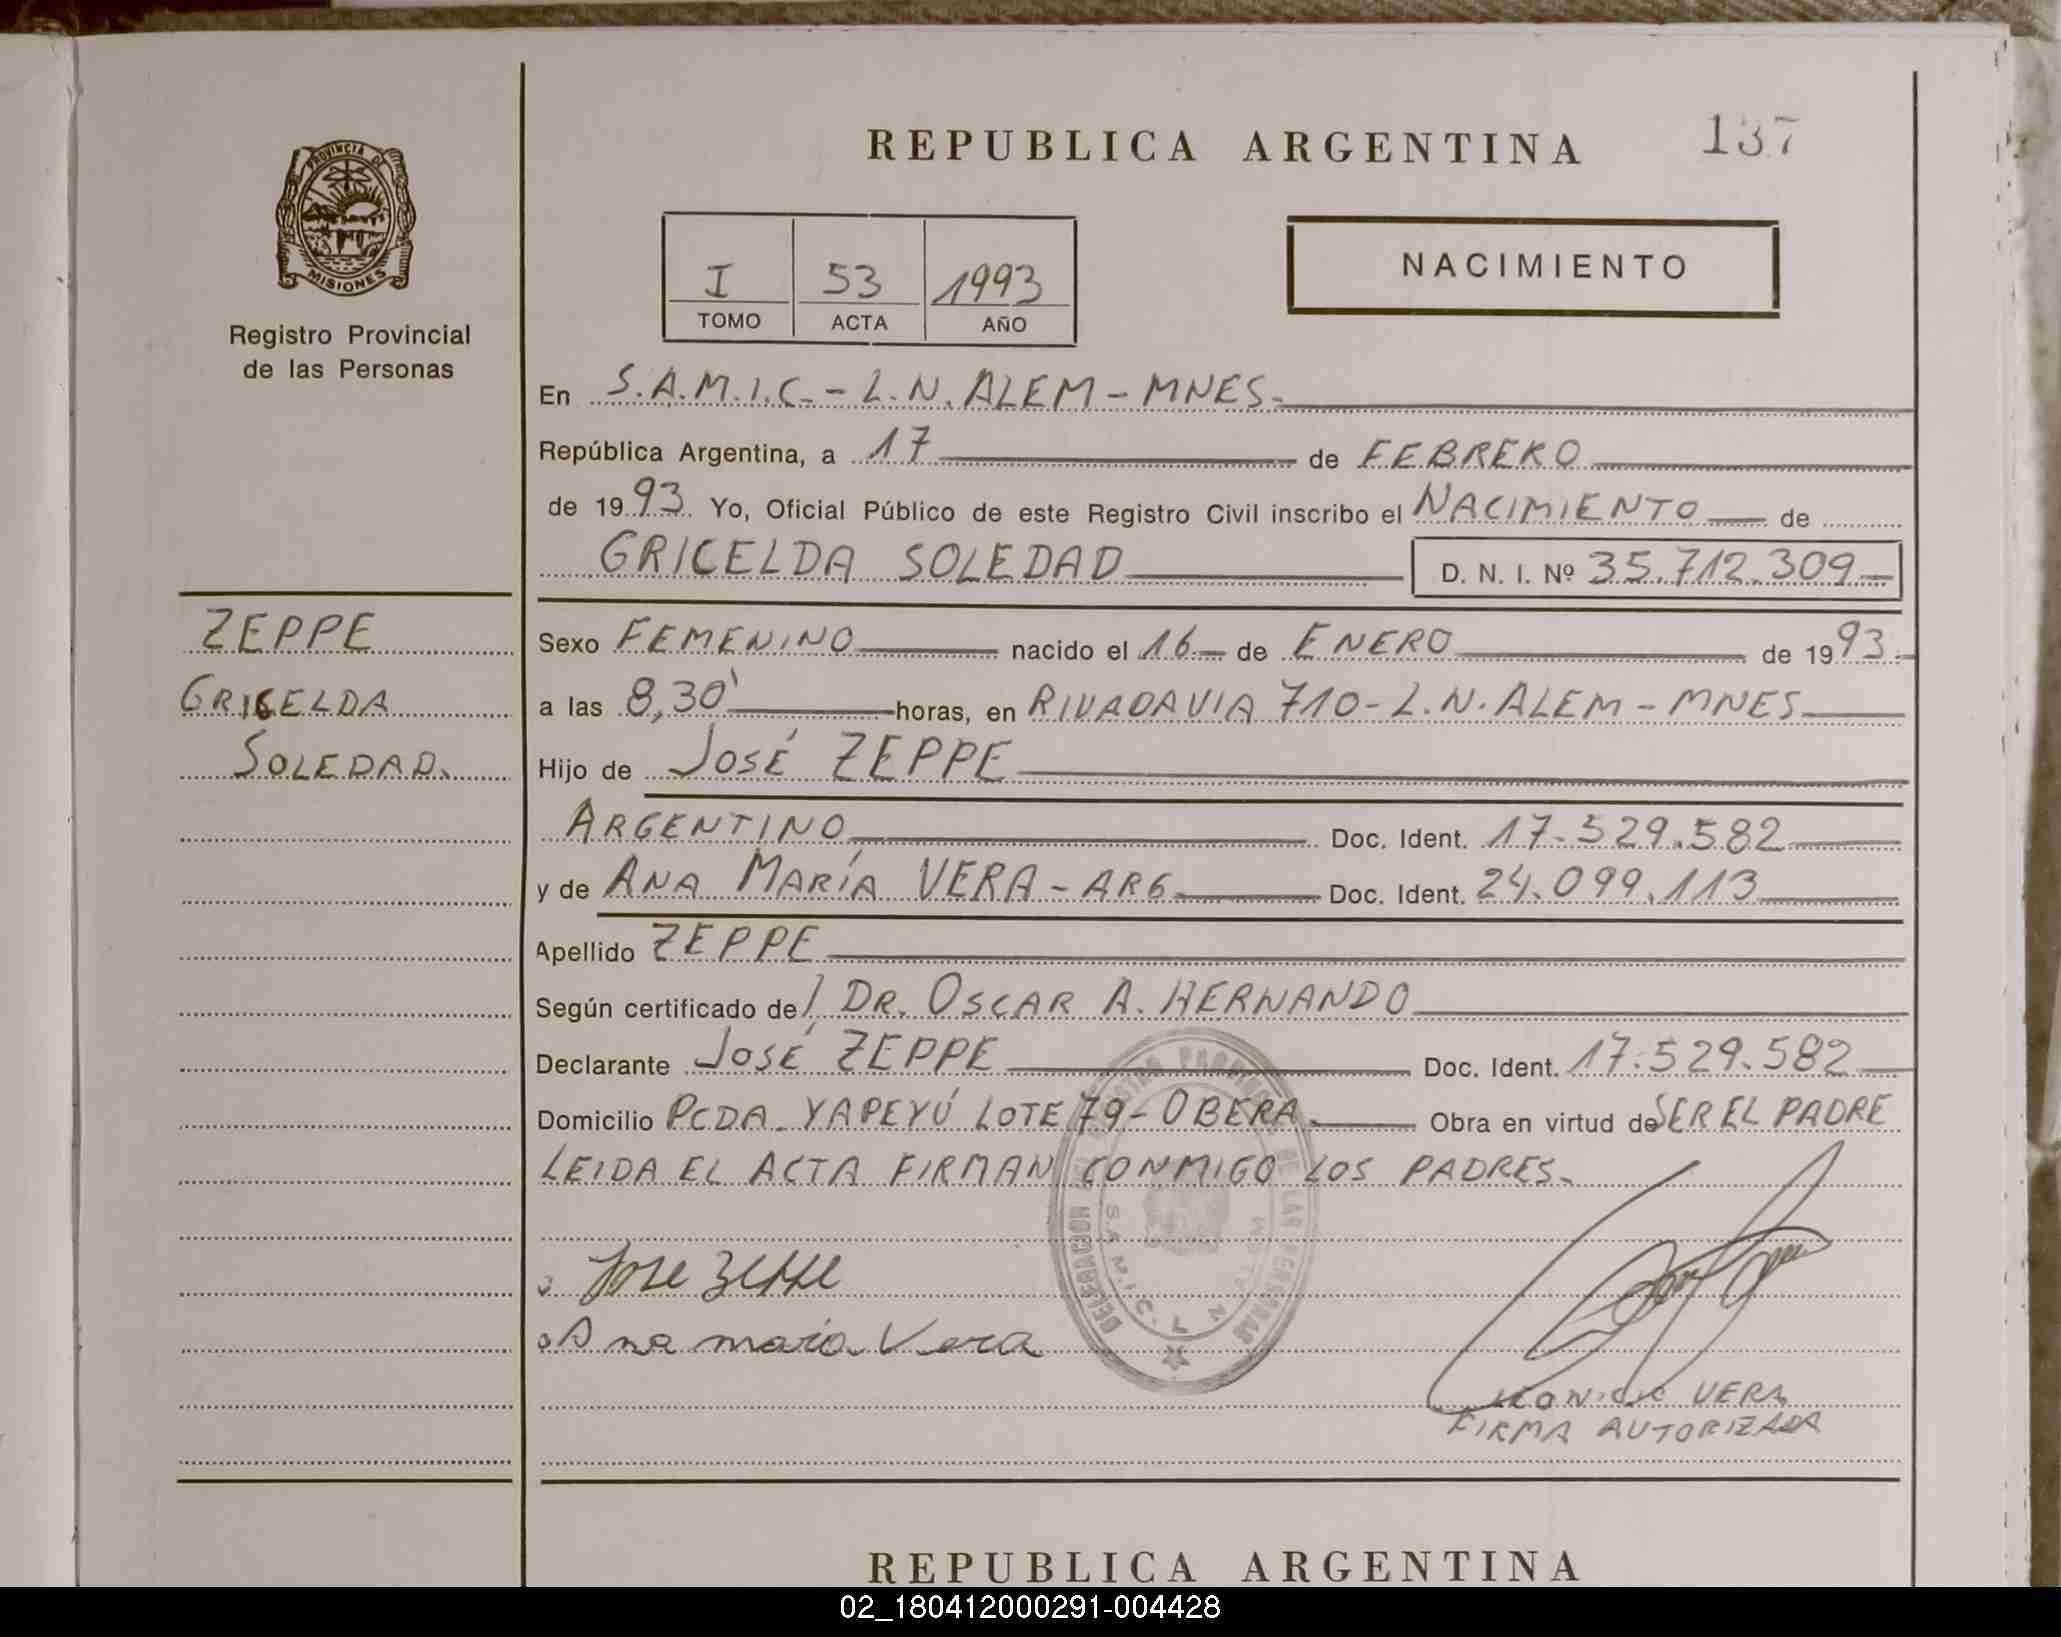 REPUBLICA ARGENTINA 137
PROVINCIA D
MISIONES
Registro Provincial
de las Personas
I 53 1993
TOMO ACTA AÑO
NACIMIENTO
En S.A.M.I.C. - L.N. ALEM - MNES.
República Argentina, a 17 de FEBRERO
de 1993. Yo, Oficial Público de este Registro Civil inscribo el NACIMIENTO de
GRICELDA SOLEDAD D. N. I. Nº 35.712.309
ZEPPE
GRICELDA
SOLEDAD.
Sexo FEMENINO nacido el 16 de ENERO de 1993.
a las 8,30' horas, en RIVADAVIA 710 - L.N. ALEM - MNES
Hijo de JOSÉ ZEPPE
ARGENTINO Doc. Ident. 17.529.582
y de ANA MARÍA VERA - ARG Doc. Ident. 24.099.113
Apellido ZEPPE
Según certificado de DR. OSCAR A. HERNANDO
Declarante JOSÉ ZEPPE Doc. Ident. 17.529.582
Domicilio PCDA. YAPEYÚ LOTE 79 - OBERA. Obra en virtud de SER EL PADRE
LEIDA EL ACTA FIRMAN CONMIGO LOS PADRES.
Jose Zeppe
Ana maria Vera
DELEGACION DEL REGISTRO PROVINCIAL DE LAS PERSONAS
S.A.M.I.C. L. N. ALEM
VERA
FIRMA AUTORIZADA
REPUBLICA ARGENTINA
02_180412000291-004428